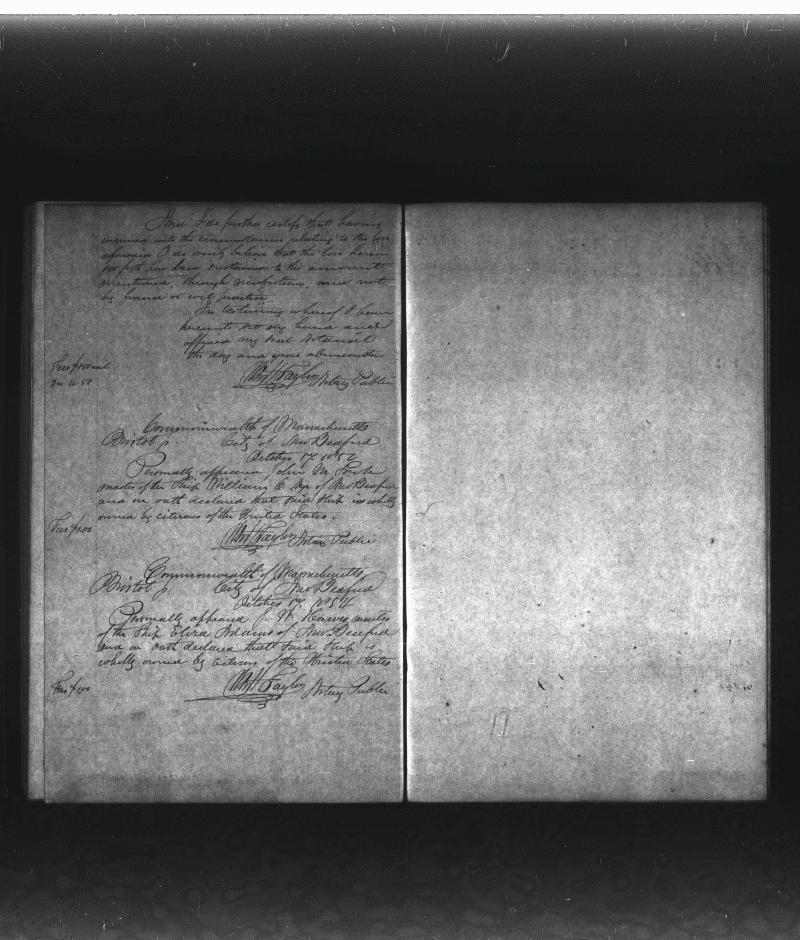 And I do further certify that having
inquired into the circumstances relating to the loss
aforesaid I do verily believe that the loss herein
set forth has been sustained to the amount
mentioned, through misfortune, and not
by fraud or evil practice.
In testimony whereof I have
hereunto set my hand and
affixed my Seal Notarial
the day and year abovewritten
Notary Public
Commonwealth of Massachusetts
Bristol ss. City of New Bedford
October 17. 1854
Personally appeared John M.
master of the Ship William C. Nye of New Bedford
and on oath declared that said Ship is wholly
owned by citizens of the United States.
Fees $1.00
Notary Public
Commonwealth of Massachusetts
Bristol ss. City of New Bedford
October 17. 1854
Personally appeared W. Hawes master
of the Ship Eliza Adams of New Bedford
and on oath declared that said Ship is
wholly owned by Citizens of the United States
Fees $1.00
Notary Public
17